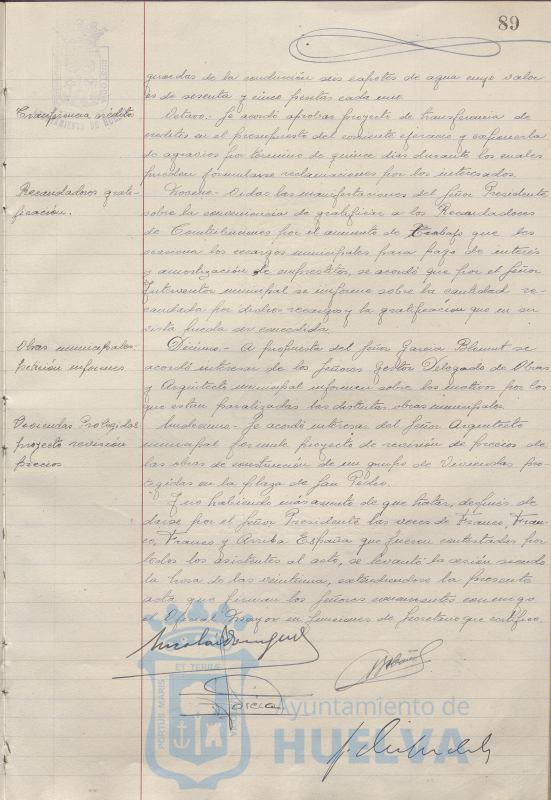 89
guardas de la conducción seis capotes de agua cuyo valor
es de sesenta y cinco pesetas cada uno.
Transferencia créditos
Octavo.- Se acordó aprobar proyecto de transferencia de
créditos en el presupuesto del corriente ejercicio y exponerlo
de agravios por término de quince días durante los cuales
pueden formularse reclamaciones por los interesados.
Recaudadores grati-
ficación.
Noveno.- Oidas las manifestaciones del Señor Presidente
sobre la conveniencia de gratificar a los Recaudadores
de Contribuciones por el aumento de trabajo que les
ocasiona los recargos municipales para pago de interés
y amortización de empréstitos, se acordó que por el Señor
Interventor municipal se informe sobre la cantidad re-
caudada por dichos recargos y la gratificación que en su
vista pueda ser concedida.
Obras municipales.
petición informes.
Décimo.- A propuesta del Señor García se
acordó interesar de los Señores Gestor Delegado de Obras
y Arquitecto municipal informen sobre los motivos por los
que estan paralizadas las distintas obras municipales.
Viviendas Protegidas
proyecto revisión
precios
Undécimo.- Se acordó interesar del Señor Arquitecto
municipal formule proyecto de revisión de precios de
las obras de construcción de un grupo de Viviendas pro-
tegidas en la plaza de San Pedro.
Y no habiendo más asuntos de que tratar, después de
darse por el Señor Presidente las voces de Franco, Fran-
co, Franco y Arriba España que fueron contestadas por
todos los asistentes al acto, se levantó la sesión siendo
la hora de las veintiuna, extendiéndose la presente
acta que firman los Señores concurrentes conmigo
el Oficial Mayor en funciones de Secretario que certifico.
García
PORTUS MARIS ET TERRAE
Ayuntamiento de
HUELVA